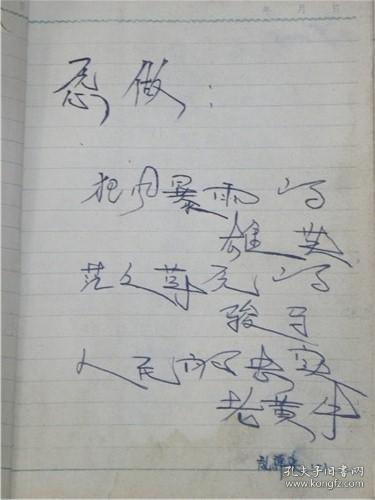 年 月 日
愿做：
犯风暴雨的
雄英
范久草元的
骏马
人民的忠实
老黄牛
孔夫子旧书网
www.kongfz.com